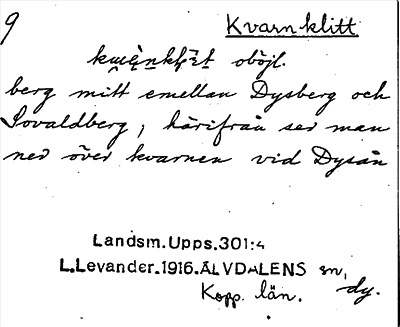 9
Kvarnklitt
oböjl.
berg mitt emellan Dysberg och
Lovaldberg, härifrån ser man
ned över kvarnen vid Dysån
Landsm. Upps. 301:4
L. Levander. 1916. ÄLVDALENS sn,
Kopp. län. dy.